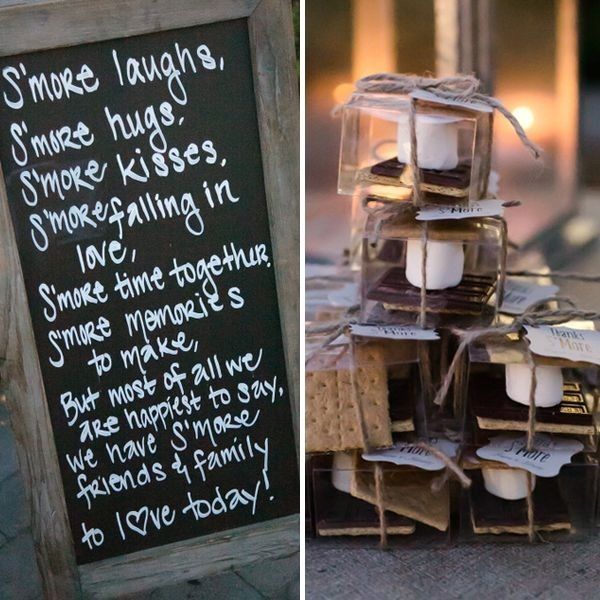 S'more laughs,
S'more hugs,
S'more kisses,
S'more falling in
love,
S'more time together,
S'more memories
to make,
But most of all we
are happiest to say,
we have S'more
friends & family
to l♡ve today!
S'More
Thanks
S'More
Thanks
S'More
S'More